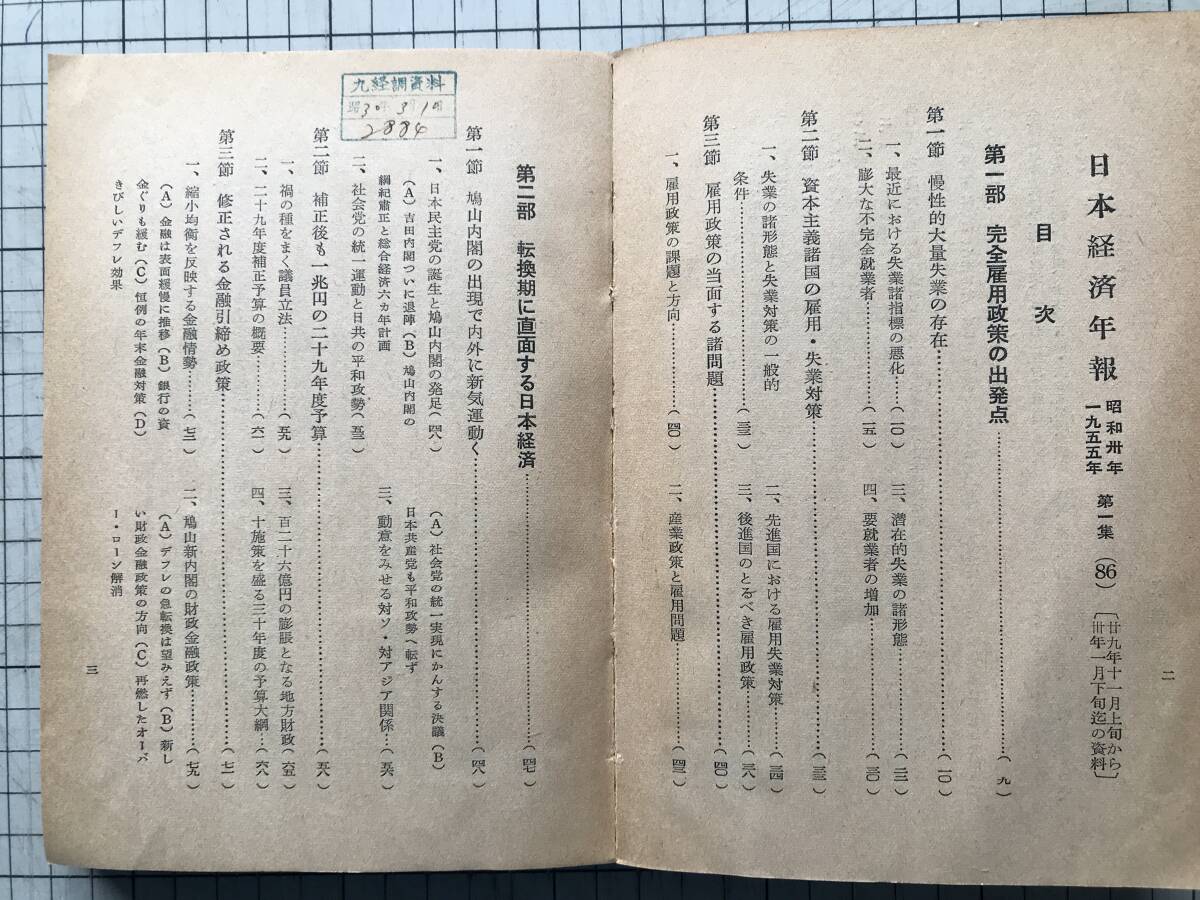 日本経済年報 昭和卅年 一九五五年 第一集（86）〔廿九年十一月上旬から 卅年一月下旬迄の資料〕
二
目次
第一部 完全雇用政策の出発点…（九）
第一節 慢性的大量失業の存在…（一〇）
一、最近における失業諸指標の悪化……（一〇）
三、潜在的失業の諸形態…
二、膨大な不完全就業者……（一五）
四、要就業者の増加…（三〇）
第二節 資本主義諸国の雇用・失業対策…（三三）
一、失業の諸形態と失業対策の一般的
条件…（三三）
二、先進国における雇用失業対策…（三四）
三、後進国のとるべき雇用政策…（三八）
第三節 雇用政策の当面する諸問題…（四〇）
一、雇用政策の課題と方向…（四〇）
二、産業政策と雇用問題…（四二）
九経調資料
昭30年3月1日
2884
第二部 転換期に直面する日本経済…（四七）
第一節 鳩山内閣の出現で内外に新気運動く…（四八）
一、日本民主党の誕生と鳩山内閣の発足（四八）
（A）吉田内閣ついに退陣（B）鳩山内閣の
綱紀粛正と総合経済六カ年計画
二、社会党の統一運動と日共の平和攻勢（五三）
（A）社会党の統一実現にかんする決議（B）
日本共産党も平和攻勢へ転ず
三、動意をみせる対ソ・対アジア関係…（五六）
第二節 補正後も一兆円の二十九年度予算…（五八）
一、禍の種をまく議員立法…（五九）
三、百二十六億円の膨脹となる地方財政（六五）
二、二十九年度補正予算の概要…（六一）
四、十施策を盛る三十年度の予算大綱…（六八）
第三節 修正される金融引締め政策…（七一）
一、縮小均衡を反映する金融情勢…（七二）
（A）金融は表面緩慢に推移（B）銀行の資
金ぐりも緩む（C）恒例の年末金融対策（D）
きびしいデフレ効果
二、鳩山新内閣の財政金融政策…（七九）
（A）デフレの急転換は望みえず（B）新し
い財政金融政策の方向（C）再燃したオーバ
ー・ローン解消
三